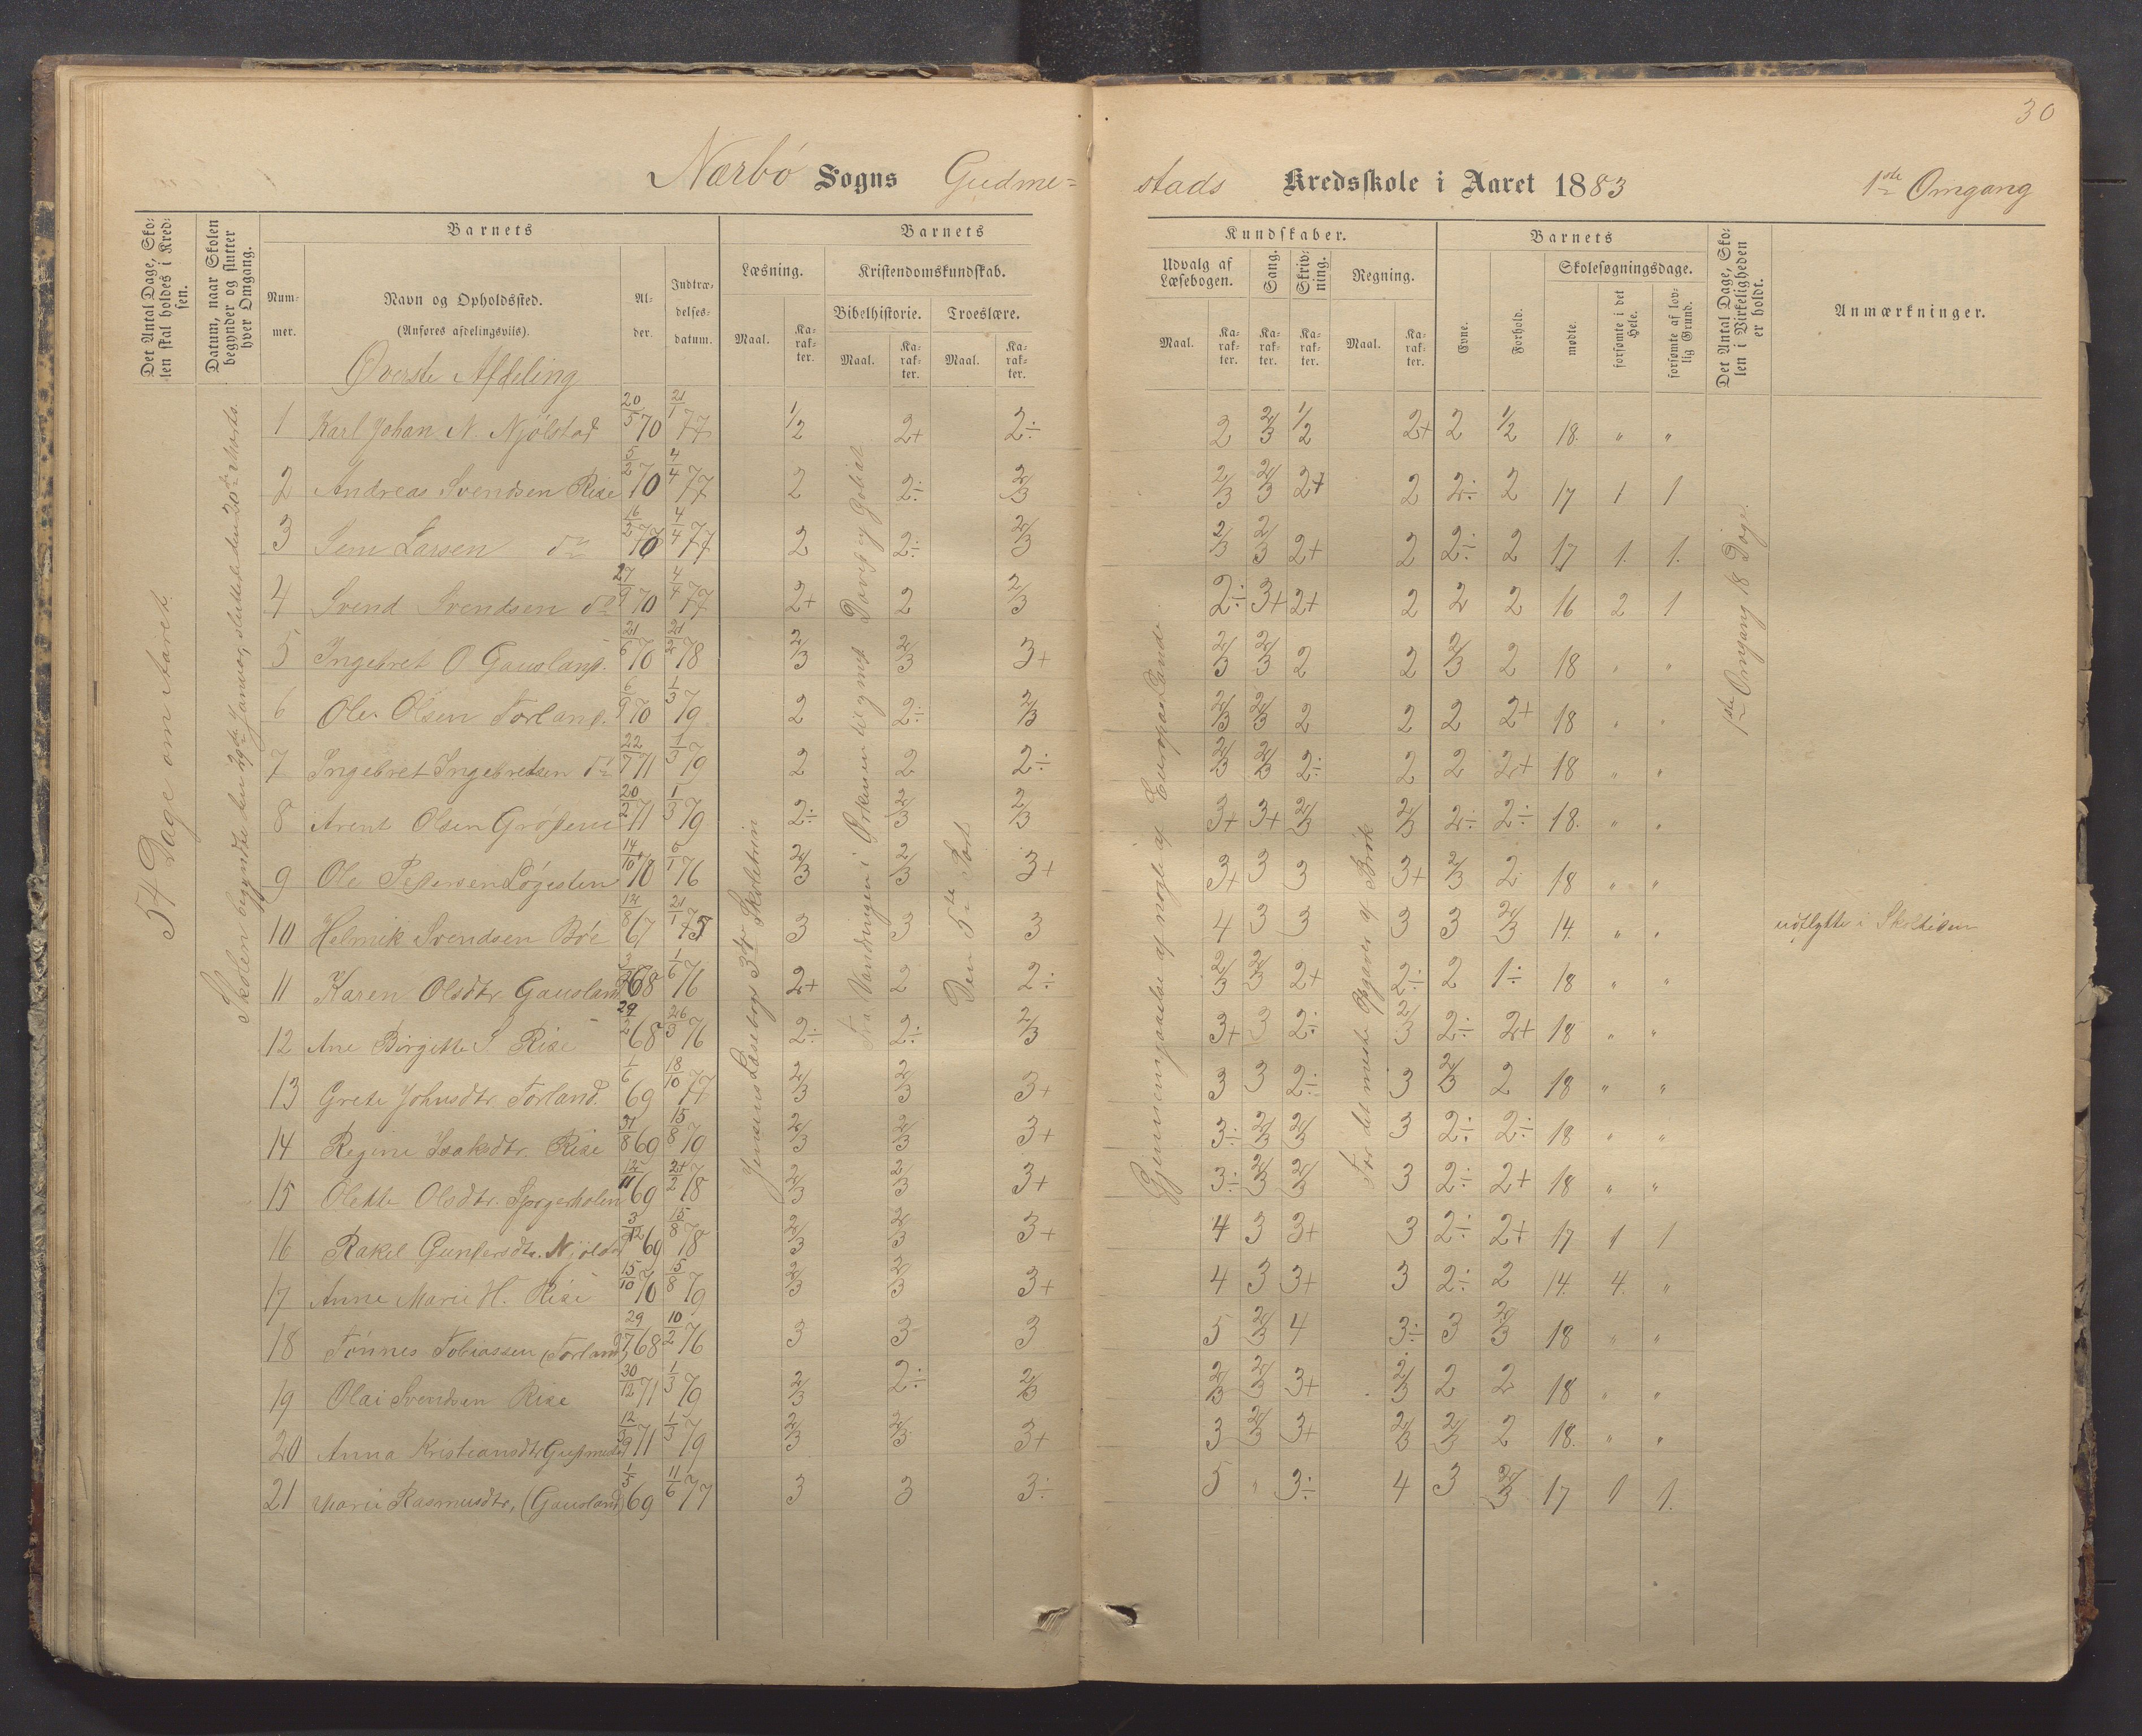 30
Nærbø Sogns Gudme=
stads Kredsskole i Aaret 1883 1ste Omgang
Det Antal Dage, Sko-
len skal holdes i Kred-
sen.
Datum, naar Skolen
begynder og slutter
hver Omgang.
Barnets
Num-
mer.
Navn og Opholdssted.
(Anføres afdelingsviis).
Al-
der.
Indtræ-
delses-
datum.
Barnets
Læsning.
Maal.
Ka-
rak-
ter.
Kristendomskundskab.
Bibelhistorie.
Maal.
Ka-
rak-
ter.
Troeslære.
Maal.
Ka-
rak-
ter.
Kundskaber.
Udvalg af
Læsebogen.
Maal.
Ka-
rak-
ter.
Sang.
Ka-
rak-
ter.
Skriv-
ning.
Ka-
rak-
ter.
Regning.
Maal.
Ka-
rak-
ter.
Barnets
Evne.
Forhold.
Skolesøgningsdage.
mødte.
forsømte i det
Hele.
forsømte af lov-
lig Grund.
Det Antal Dage, Sko-
len i Virkeligheden
er holdt.
Anmærkninger.
Øverste Afdeling
54 Dage om Aaret.
Skolen begyndte den Januar, sluttet den 20de Marts.
Jensens Læsebogs 3die Skoletrin
Fra Vandringen i Ørkenen til gmd David og Goliat
Den 5te Part
Gjennemgaaelse af nogle af Europas Lande
For det meste Opgaver af Brøk
1ste Omgang 18 Dage.
1 Karl Johan N. Njølstad 20/5 70 21/1 77 1/2 2+ 2÷ 2 2/3 1/2 2+ 2 1/2 18. " "
2 Andreas Svendsen Rise 5/2 70 4/4 77 2 2÷ 2/3 2/3 2/3 2+ 2 2÷ 2 17 1 1
3 Sem Larsen do 16/2 70 4/4 77 2 2÷ 2/3 2/3 2/3 2+ 2 2÷ 2 17 1. 1.
4 Svend Svendsen do 27/9 70 4/4 77 2+ 2 2/3 2÷ 3+ 2+ 2 2 2 16 2 1
5 Ingebret O. Gausland. 21/6 70 21/2 78 2/3 2/3 3+ 2/3 2/3 2 2 2/3 2 18 " "
6 Ole Olsen Torland. 6/9 70 1/3 79 2 2÷ 2/3 2/3 2/3 2 2 2 2+ 18 " "
7 Ingebret Ingebretsen do 22/7 71 1/3 79 2 2 2÷ 2/3 2/3 2÷ 2 2 2+ 18 " "
8 Arent Olsen Grødem 20/2 71 1/3 79 2÷ 2/3 2/3 3+ 3+ 2/3 2/3 2÷ 2÷ 18. " "
9 Ole Pedersen Løgesten 14/10 70 6/1 76 2/3 2/3 3+ 3+ 3 3 3+ 2/3 2 18 " "
10 Helmik Svendsen Bøe 12/8 67 21/1 75 3 3 3 4 3 3 3 3 2/3 14. " " udflytte i Skoletiden
11 Karen Olsdtr. Gausland 68 1/6 76 2+ 2 2÷ 2/3 2/3 2+ 2÷ 2 1÷ 18 " "
12 Ane Birgitte S. Rise 29/2 68 26/3 76 2÷ 2÷ 2/3 3+ 3 2÷ 2/3 2÷ 2+ 18 " "
13 Grete Johnsdtr. Torland. 1/6 69 18/10 77 2/3 2/3 3+ 3 3 2÷ 3 2/3 2 18 " "
14 Regine Isaksdtr. Rise 31/8 69 15/8 79 2/3 2/3 3+ 3÷ 2/3 2/3 3 2÷ 2÷ 18 " "
15 Olette Olsdtr. 12/11 69 21/2 78 2/3 2/3 3+ 3÷ 2/3 2/3 3 2÷ 2+ 18 " "
16 Rakel Gundersdtr. Njølst 3/12 69 15/8 78 2/3 2/3 3+ 4 3 3+ 3 2÷ 2+ 17 1 1
17 Anne Marie H. Rise 15/10 70 15/8 79 2/3 2/3 3+ 4 3 3+ 3 2÷ 2 14. 4. "
18 Tønnes Tobiassen (Torland) 29/7 68 10/2 76 3 3 3 5 2/3 4 3÷ 3 2/3 18 " "
19 Olai Svendsen Rise 30/12 71 1/3 79 2/3 2÷ 2/3 2/3 2/3 3+ 2/3 2 2 18 " "
20 Anna Kristiansdtr. Gudmestad 12/9 71 1/3 79 2/3 2/3 3+ 3 2/3 3+ 2/3 2/3 2 18. " "
21 Marie Rasmusdtr, (Gausland) 1/5 69 11/6 77 3 3 3÷ 5 " 3÷ 4 3 2/3 17 1 1.